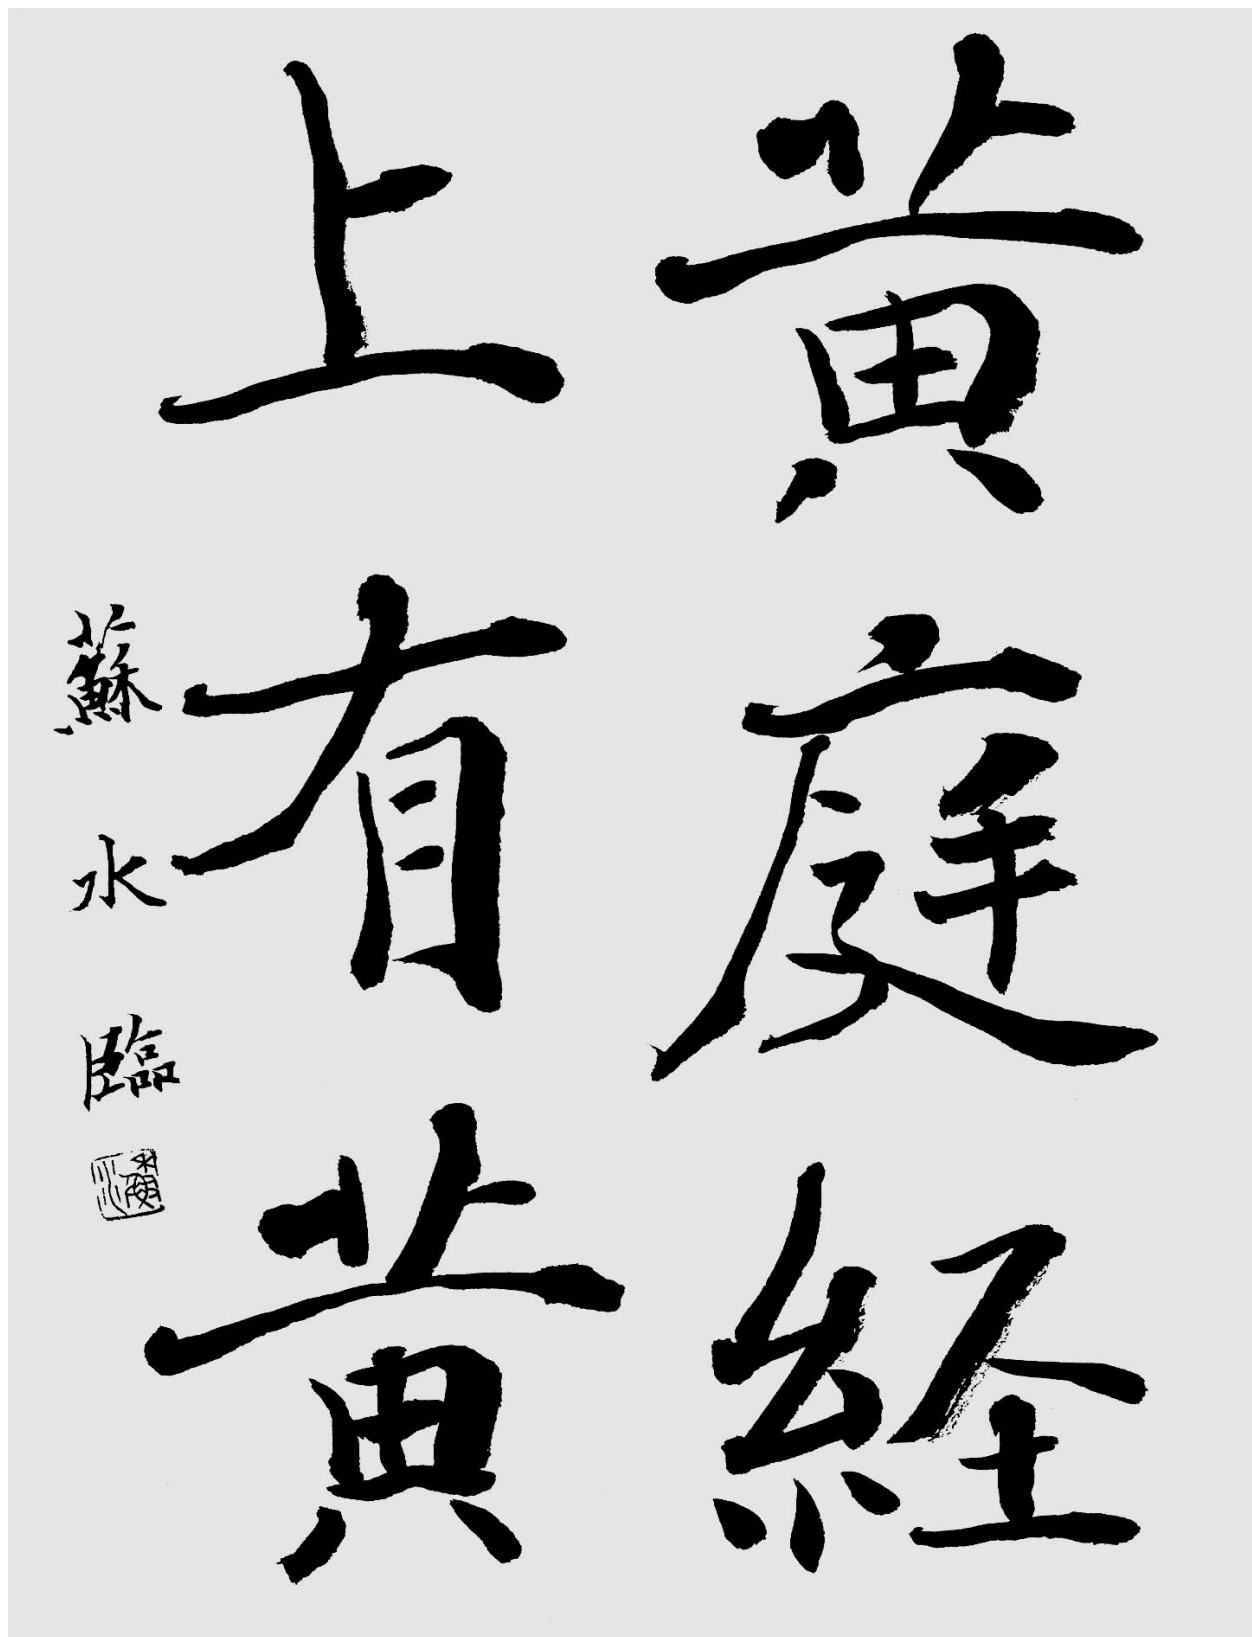 黄庭経
上有黄
蘇水臨